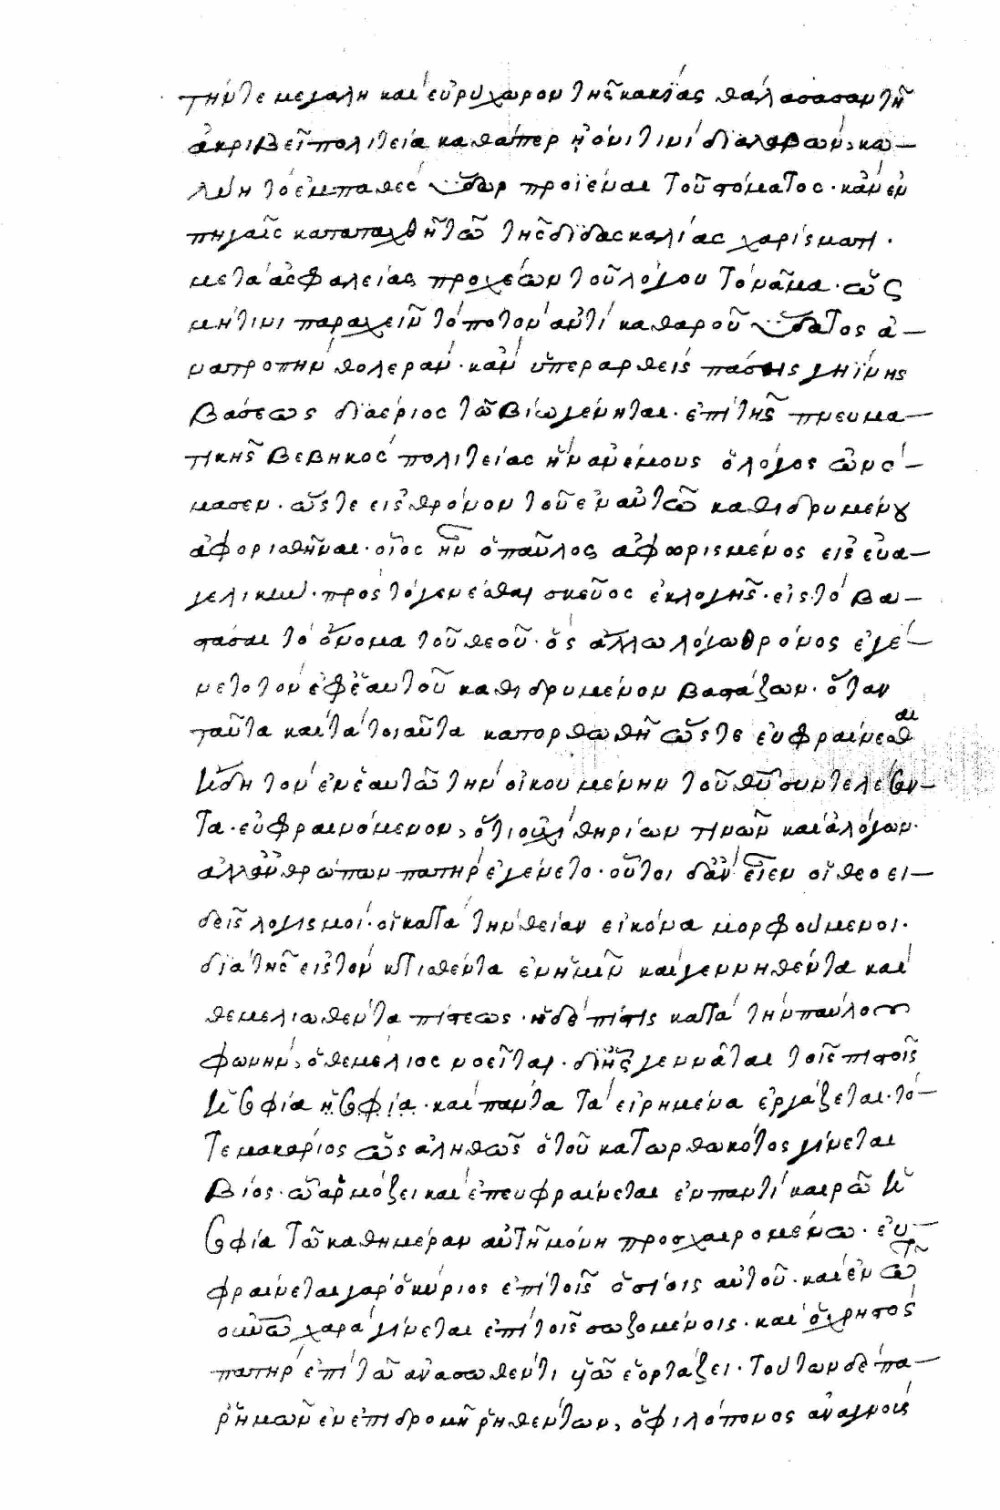 τὴν τε μεγάλη καὶ εὐρύχωρον τῆς κακίας θάλασσαν τῆ
ἀκριβεῖ πολιτεία καθάπερ ἠόνι τινὶ διαλαβὼν, κω-
λύη τὸ ἐμπαθὲς ὕδωρ προϊέναι τοῦ στόματος· κἂν ἐν
πηγαῖς καταπαχθῆ τῶ τῆς διδασκαλίας χαρίσματι·
μετὰ ἀσφαλείας προχέων τοῦ λόγου τὸ νᾶμα· ὡς
μήτινι παρασχεῖν τὸ ποτὸν ἀντὶ καθαροῦ ὕδατος ἀ-
νατροπὴν θολερὰν· κἂν ὑπεραρθεὶς πάσης γηΐνης
βάσεως διαέριος τῶ βίω γένηται· ἐπὶ τῆς πνευμα-
τικῆς βεβηκὸς πολιτείας ἣν ἀνέμους ὁ λόγος ὠνό-
μασεν· ὥστε εἰς θρόνον τοῦ ἐν αὐτῶ καθιδρυμένου
ἀφορισθῆναι· οἷος ἦν ὁ παῦλος ἀφωρισμένος εἰς εὐα-
γελικων· πρὸς τὸ γενέσθαι σκεῦος ἐκλογῆς· εἰς τὸ βα-
στάσαι τὸ ὄνομα τοῦ θεοῦ· ὃς ἄλλω λόγω θρόνος ἐγέ-
νετο τὸν ἐφ' ἑαυτοῦ καθιδρυμένον βαστάζων· ὅταν
ταῦτα καὶ τὰ τοιαῦτα κατορθωθῆ ὥστε εὐφραίνεσθαι
ἤδη τὸν ἐν ἑαυτῶ τὴν οἰκουμένην τοῦ θῦ συντελέσαν-
τα· εὐφραινόμενον, ὅτι οὐχὶ θηρίων τινῶν καὶ ἀλόγων·
ἀλλ' ἀνθρώπων πατὴρ ἐγένετο· οὗτοι δ' ἂν εἶεν οἱ θεοει-
δεῖς λογισμοὶ· οἱ κατὰ τὴν θείαν εἰκόνα μορφούμενοι·
διὰ τῆς εἰς τὸν κτισθέντα ἐν ἡμῖν καὶ γεννηθέντα καὶ
θεμελιωθέντα πίστεως· ἡ δὲ πίστις κατὰ τὴν παύλου
φωνὴν, ὁ θεμέλιος νοεῖται· δι' ἧς γεννᾶται τοῖς πιστοῖς
ἡ σοφία ἡ σοφία· καὶ πάντα τὰ εἰρημένα ἐργάζεται· τό-
τε μακάριος ὡς ἀληθῶς ὁ τοῦ κατωρθωκότος γίνεται
βίος· ὧ ἁρμόζει καὶ ἐπευφραίνεται ἐν παντὶ καιρῶ ἡ
σοφία τῶ καθημέραν αὐτῆ μόνη προσχαιρομένω· εὐ-
φραίνεται γὰρ ὁ κύριος ἐπὶ τοῖς ὁσίοις αὐτοῦ· καὶ ἐν τῶ
οὐνῶ χαρὰ γίνεται ἐπὶ τοῖς σωζομένοις· καὶ ὁ χρηστὸς
πατὴρ ἐπὶ τῶ ἀνασωθέντι υἱῶ ἑορτάζει· τούτων δὲ πα-
ρ' ἡμῶν ἐν ἐπιδρομῆ ῥηθέντων, ὁ φιλόπονος ἀναγνοὺς